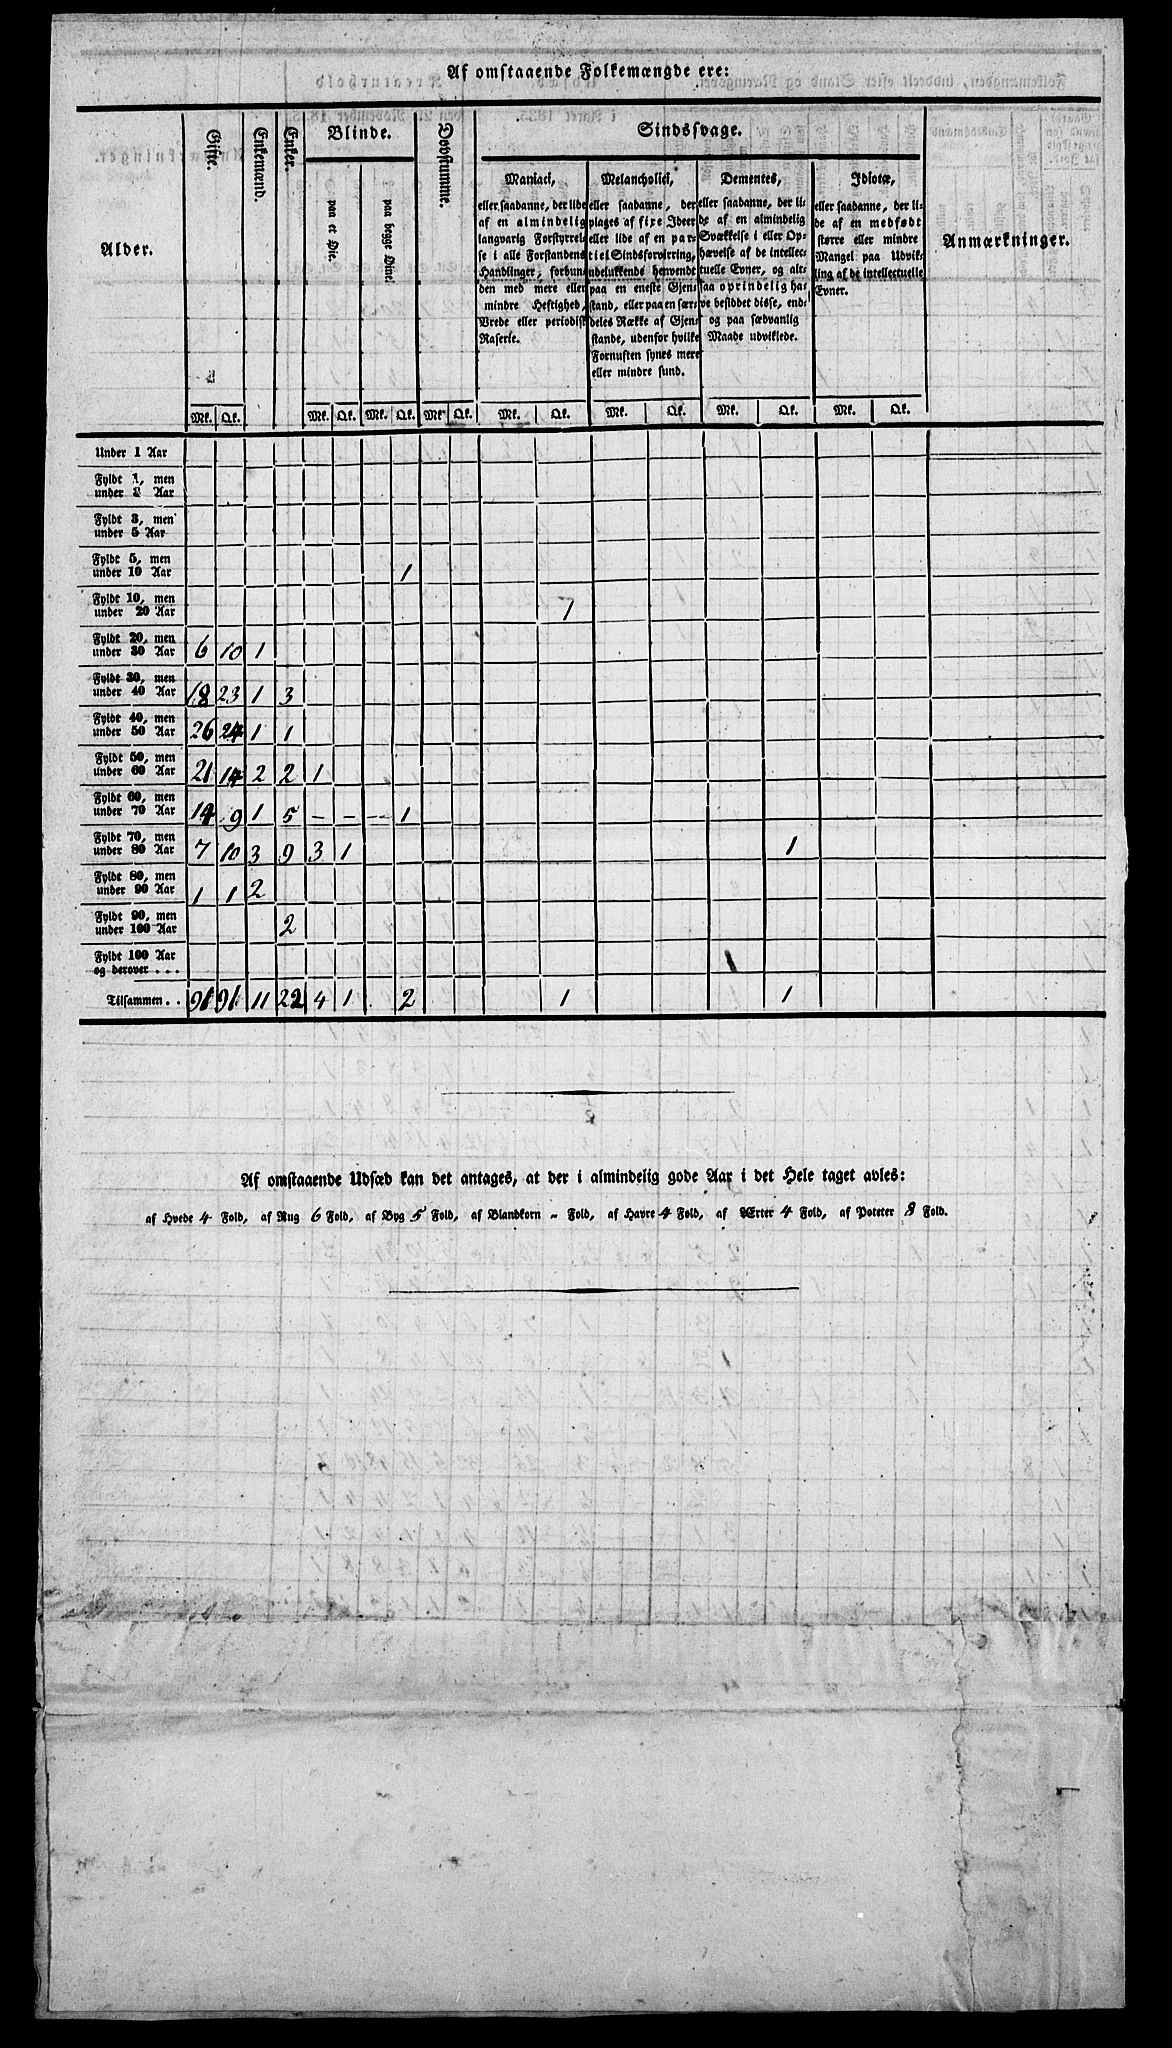 Af omstaaende Folkemængde ere:
Alder. Gifte. Enkemænd. Enker. Blinde. Døvstumme. Sindssvage. Anmærkninger.
paa et Øie. paa begge Øine.
Maniaci,
eller saadanne, der lide
af en almindelig
langvarig Forstyrrel-
se i alle Forstandens
Handlinger, forbun-
den med mere eller
mindre Heftighed,
Vrede eller periodisk
Raserie.
Melancholici,
eller saadanne, der
plages af fixe Ideer
eller lide af en par-
tiel Sindsforvirring,
udelukkende henvendt
paa en eneste Gjen-
stand, eller paa en sær-
deles Række af Gjen-
stande, udenfor hvilke
Fornuften synes mere
eller mindre sund.
Dementes,
eller saadanne, der li-
de af en almindelig
Svækkelse i eller Op-
hævelse af de intellec-
tuelle Evner, og alt-
saa oprindelig ha-
ve besiddet disse, end-
og paa sædvanlig
Maade udviklede.
Idiotæ,
eller saadanne, der li-
de af en medfødt
større eller mindre
Mangel paa Udvik-
ling af de intellectuelle
Evner.
Mk. Qk. Mk. Qk. Mk. Qk. Mk. Qk. Mk. Qk. Mk. Qk. Mk. Qk. Mk. Qk.
Under 1 Aar
Fyldt 1, men
under 3 Aar
Fyldt 3, men
under 5 Aar
Fyldt 5, men
under 10 Aar 1
Fyldt 10, men
under 20 Aar 1
Fyldt 20, men
under 30 Aar 6 10 1
Fyldt 30, men
under 40 Aar 18 23 1 3
Fyldt 40, men
under 50 Aar 26 24 1 1
Fyldt 50, men
under 60 Aar 21 14 2 2 1
Fyldt 60, men
under 70 Aar 14 9 1 5 - - - 1
Fyldt 70, men
under 80 Aar 7 10 3 9 3 1 1
Fyldt 80, men
under 90 Aar 1 1 2
Fyldt 90, men
under 100 Aar 2
Fyldt 100 Aar
og derover . . .
Tilsammen . . 91 91 11 22 4 1 2 1 1
Af omstaaende Udsæd kan det antages, at der i almindelig gode Aar i det Hele taget avles:
af Hvede 4 Fold, af Rug 6 Fold, af Byg 5 Fold, af Blandkorn - Fold, af Havre 4 Fold, af Erter 4 Fold, af Poteter 8 Fold.